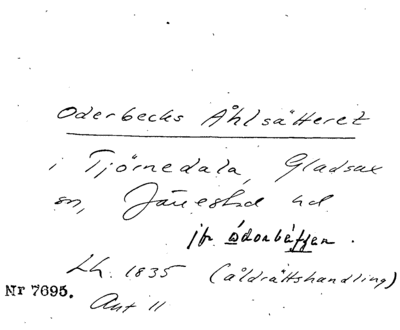 Oderbecks Åhlsätteret
i Tjörnedala, Gladsax
sn, Järrestad hd
jfr ödorbäffen.
Lh. 1835 (åldrättshandling)
Nr 7695.
Ant 11